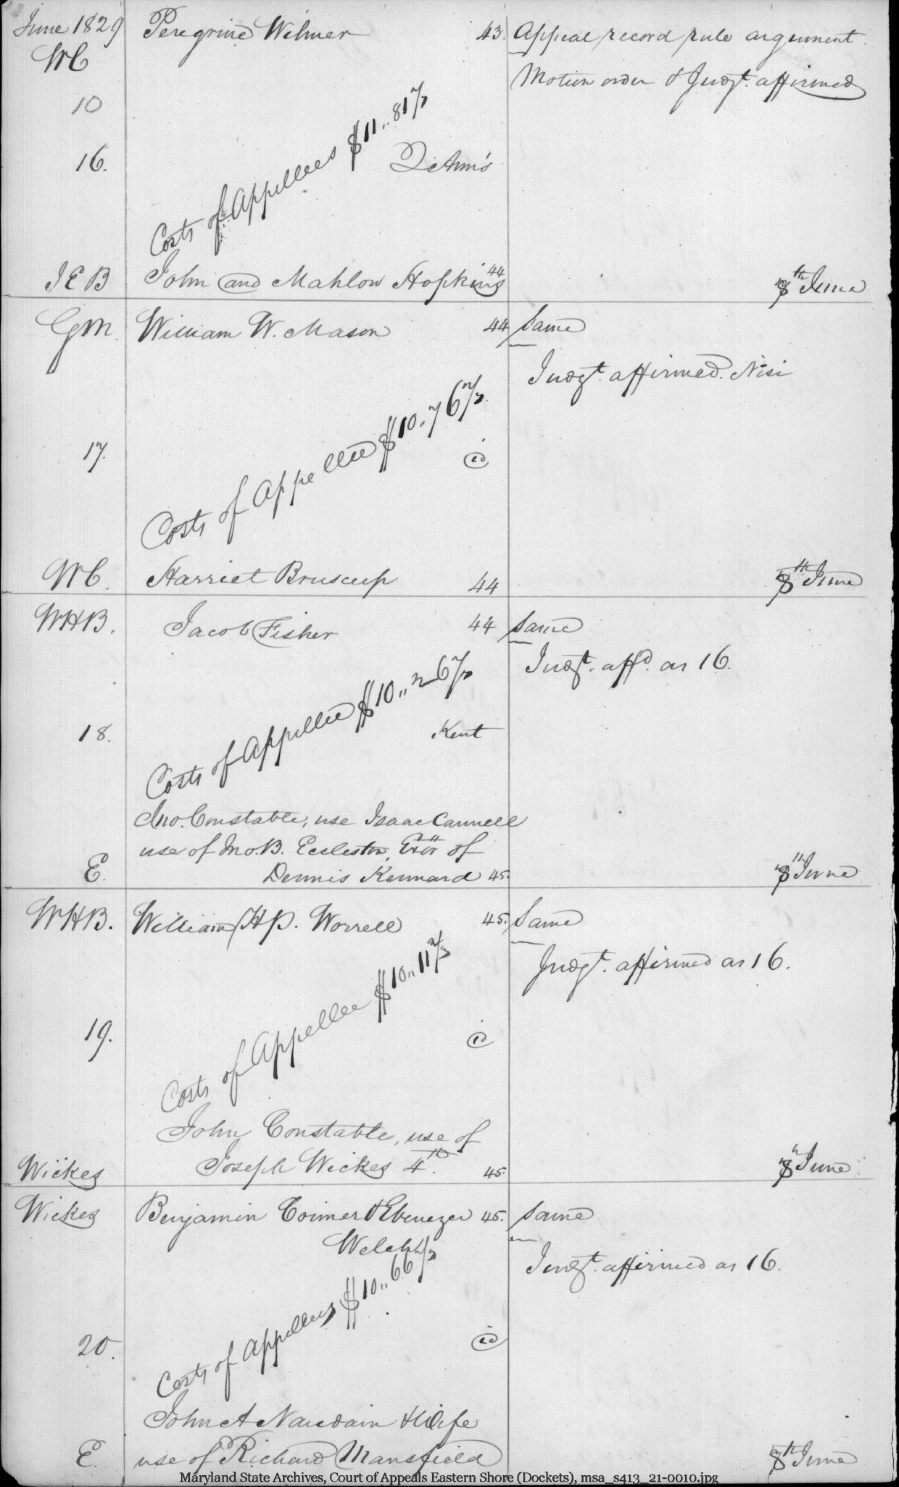 June 1829 Peregrine Wilmer 43. Appeal record rule argument
WC
Motion order & Judgt. affirmed
10
16. Costs of Appellees $11..81⅔ 2 Ann's
JEB John and Mahlon Hopkins 44 8th June
GM William W. Mason 44 Same
Judgt. affirmed. Nisi
17. Costs of Appellee $10..76⅔ id
WC. Harriet Bruscup 44 8th June
WHB. Jacob Fisher 44 Same
Judgt. affd. as 16.
18. Costs of Appellee $10..26⅔ Kent
Jno. Constable, use Isaac Cannell
use of Jno. B. Eccleston, Exor of
E. Dennis Kennard 45. 8th June
WHB. William H P. Worrell 45. Same
Judgt. affirmed as 16.
19. Costs of Appellee $10..11⅔ id
John Constable, use of
Wickes Joseph Wickes 4th. 45. 8th June
Wickes Benjamin Comer & Ebenezer 45. Same
Welch
Judgt. affirmed as 16.
20. Costs of Appellees $10..66⅔ id
John A Naudain & Wife
E. use of Richard Mansfield 8th June
Maryland State Archives, Court of Appeals Eastern Shore (Dockets), msa_s413_21-0010.jpg